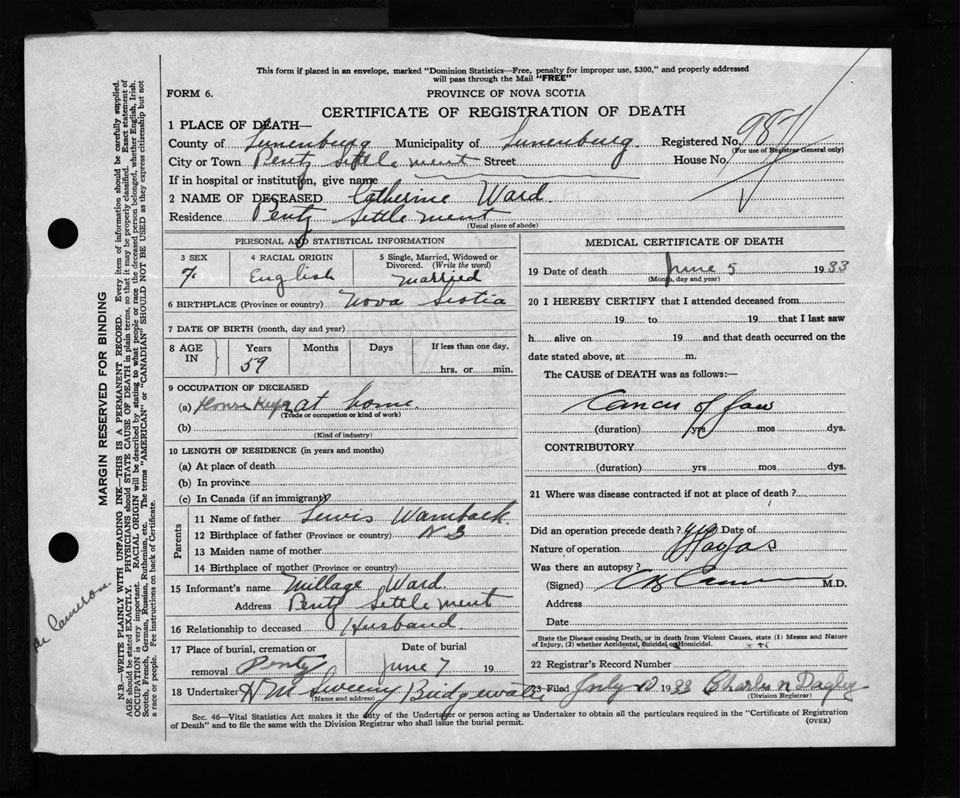 This form if placed in an envelope, marked "Dominion Statistics—Free, penalty for improper use, $300," and properly addressed
will pass through the Mail "FREE"
FORM 6.
PROVINCE OF NOVA SCOTIA
CERTIFICATE OF REGISTRATION OF DEATH
1 PLACE OF DEATH—
County of Lunenburg Municipality of Lunenburg Registered No. 987
(For use of Registrar General only)
City or Town Pentz Settlement Street House No.
If in hospital or institution, give name
2 NAME OF DECEASED Catherine Ward
Residence Pentz Settlement
(Usual place of abode)
PERSONAL AND STATISTICAL INFORMATION
3 SEX 4 RACIAL ORIGIN 5 Single, Married, Widowed or
Divorced. (Write the word)
F. English Married
6 BIRTHPLACE (Province or country) Nova Scotia
7 DATE OF BIRTH (month, day and year)
8 AGE IN Years Months Days If less than one day,
59 hrs. or min.
9 OCCUPATION OF DECEASED
(a) at home.
(Trade or occupation or kind of work)
(b)
(Kind of industry)
10 LENGTH OF RESIDENCE (in years and months)
(a) At place of death
(b) In province
(c) In Canada (if an immigrant)
Parents
11 Name of father Lewis Wamback
12 Birthplace of father (Province or country) N S
13 Maiden name of mother
14 Birthplace of mother (Province or country)
15 Informant's name Millage Ward
Address Pentz Settlement
16 Relationship to deceased Husband
17 Place of burial, cremation or Date of burial
removal Pentz June 7 19
18 Undertaker H M Sweeny Bridgewater
(Name and address)
MEDICAL CERTIFICATE OF DEATH
19 Date of death June 5 1933
(Month, day and year)
20 I HEREBY CERTIFY that I attended deceased from
19 to 19 that I last saw
h alive on 19 and that death occurred on the
date stated above, at m.
The CAUSE of DEATH was as follows:—
Cancer of Jaw
(duration) yrs mos dys.
CONTRIBUTORY
(duration) yrs mos dys.
21 Where was disease contracted if not at place of death?
Did an operation precede death? Date of
Nature of operation
Was there an autopsy?
(Signed) M.D.
Address
Date
State the Disease causing Death, or in death from Violent Causes, state (1) Means and Nature
of Injury, (2) whether Accidental, Suicidal or Homicidal.
22 Registrar's Record Number
23 Filed July 10 1933 Charles N Dagley
(Division Registrar)
Sec. 46—Vital Statistics Act makes it the duty of the Undertaker or person acting as Undertaker to obtain all the particulars required in the "Certificate of Registration
of Death" and to file the same with the Division Registrar who shall issue the burial permit.
(OVER)
MARGIN RESERVED FOR BINDING
N.B.—WRITE PLAINLY WITH UNFADING INK—THIS IS A PERMANENT RECORD. Every item of information should be carefully supplied.
AGE should be stated EXACTLY. PHYSICIANS should STATE CAUSE OF DEATH in plain terms, so that it may be properly classified. Exact statement of
OCCUPATION is very important. RACIAL ORIGIN will be described by stating to what people or race the deceased person belonged, whether English, Irish,
Scotch, French, German, Russian, Ruthenian, etc. The terms "AMERICAN" or "CANADIAN" SHOULD NOT BE USED as they express citizenship but not
a race or people. See instructions on back of Certificate.
Cameron.